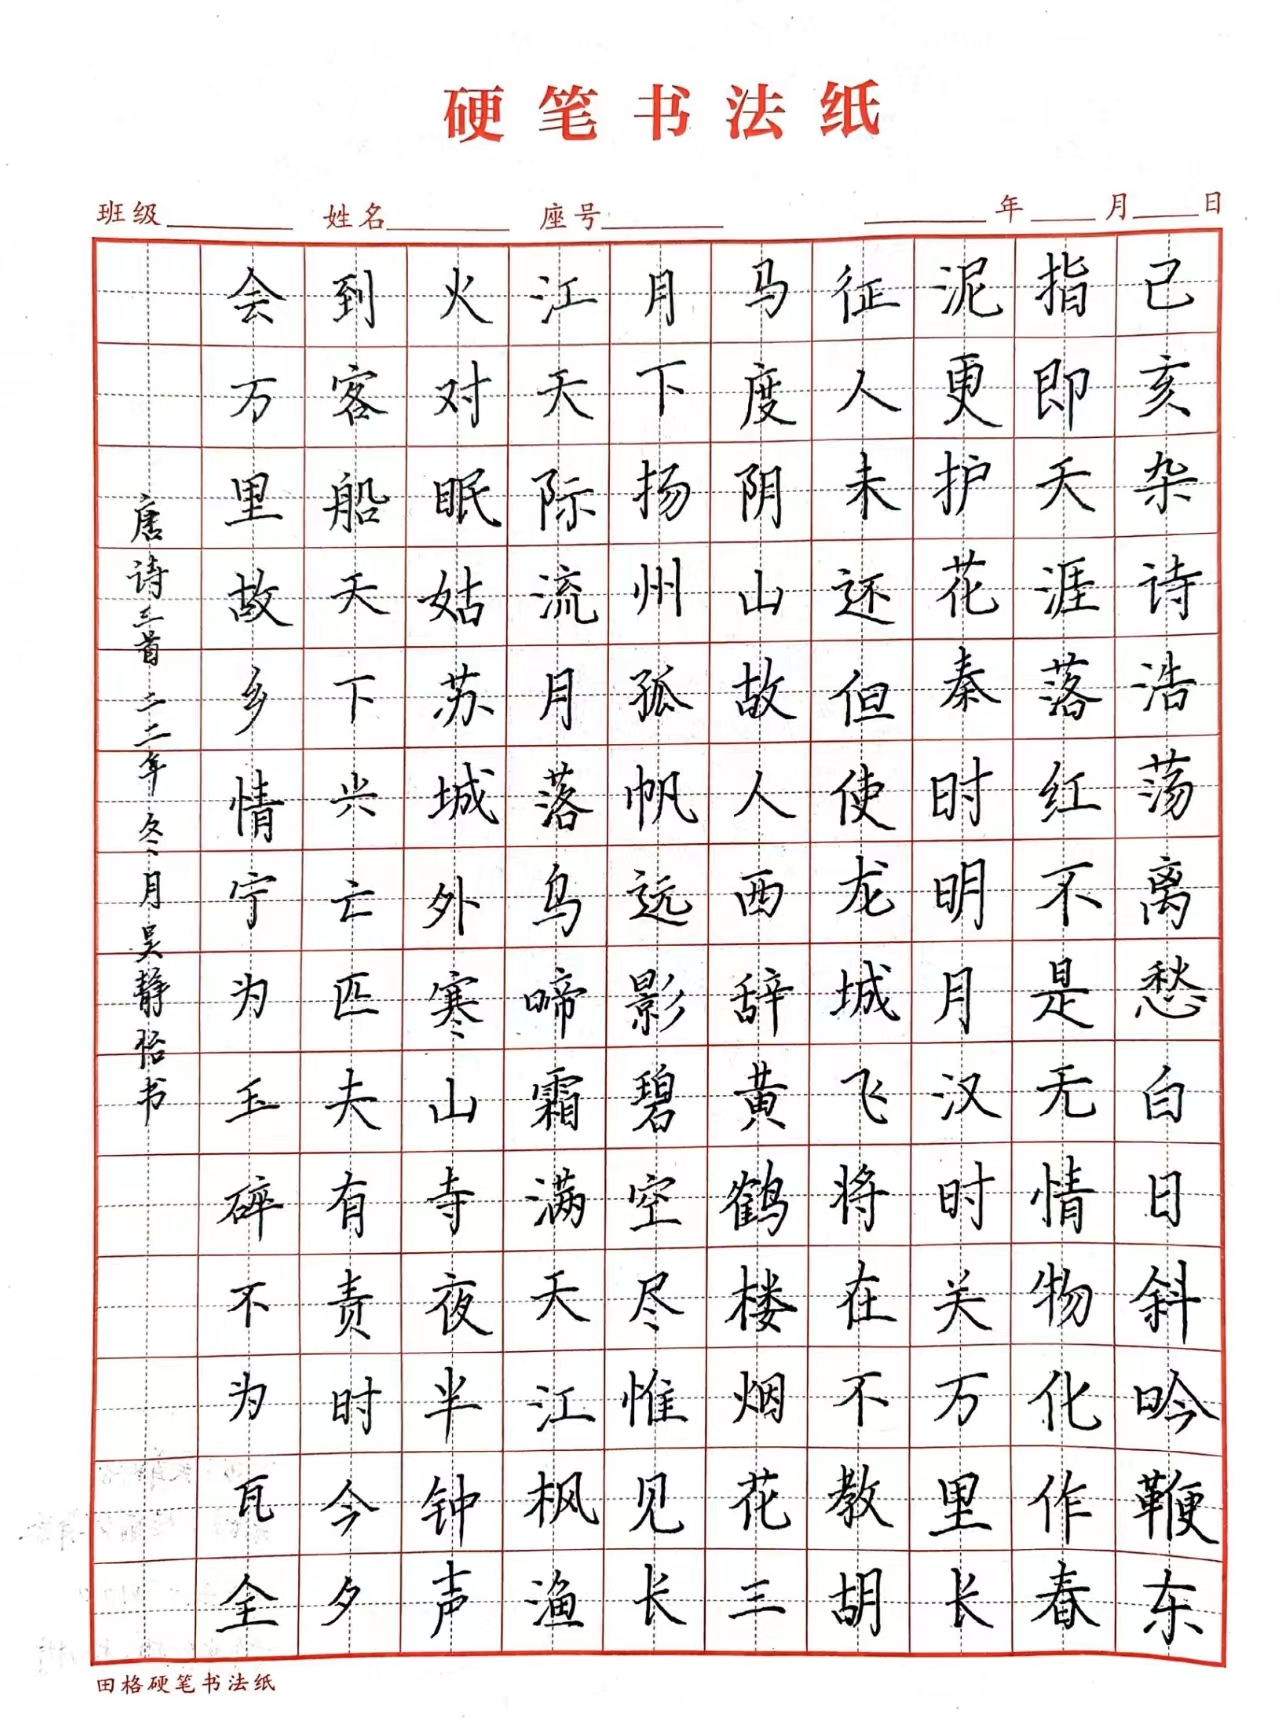 硬笔书法纸
班级 姓名 座号 年 月 日
己亥杂诗浩荡离愁白日斜吟鞭东
指即天涯落红不是无情物化作春
泥更护花秦时明月汉时关万里长
征人未还但使龙城飞将在不教胡
马度阴山故人西辞黄鹤楼烟花三
月下扬州孤帆远影碧空尽惟见长
江天际流月落乌啼霜满天江枫渔
火对眠姑苏城外寒山寺夜半钟声
到客船天下兴亡匹夫有责时今夕
会万里故乡情宁为玉碎不为瓦全
唐诗三首二二年冬月吴静怡书
田格硬笔书法纸